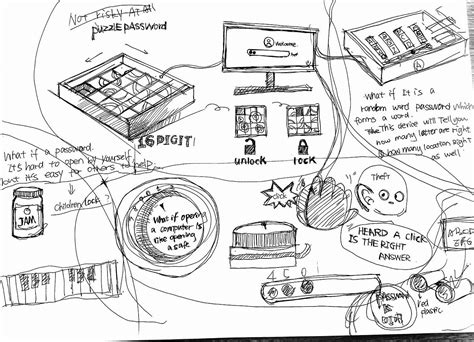 Not Risky At All
puzzle password
Welcome.
16 DIGIT!
unlock
lock
What if It is a
random word password which
forms a word.
This device will Tell you
how many letter are right
& how many location right
as well
What if a password.
It's hard to open by yourself
but it's easy for others to help.
Children lock?
JAM
What if opening
a computer is
like opening
a safe.
click
Theft
HEARD A CLICK
IS THE RIGHT
ANSWER
4 5 0
PASSWORD
IS
red
plastic